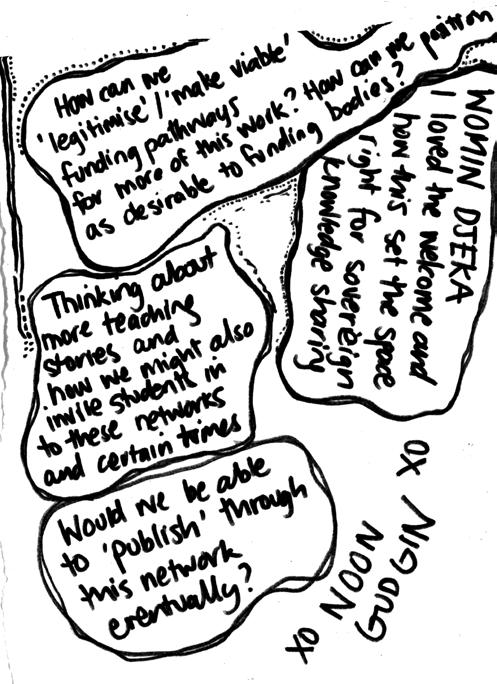 How can we
'legitimise' / 'make viable'
funding pathways
for more of this work? How can we position
as desirable to funding bodies?
WOMIN DJEKA
I loved the welcome and
how this set the space
right for sovereign
knowledge sharing
Thinking about
more teaching
stories and
how we might also
invite students in
to these networks
and certain times
Would we be able
to 'publish' through
this network
eventually?
xo NOON
GUDGIN xo